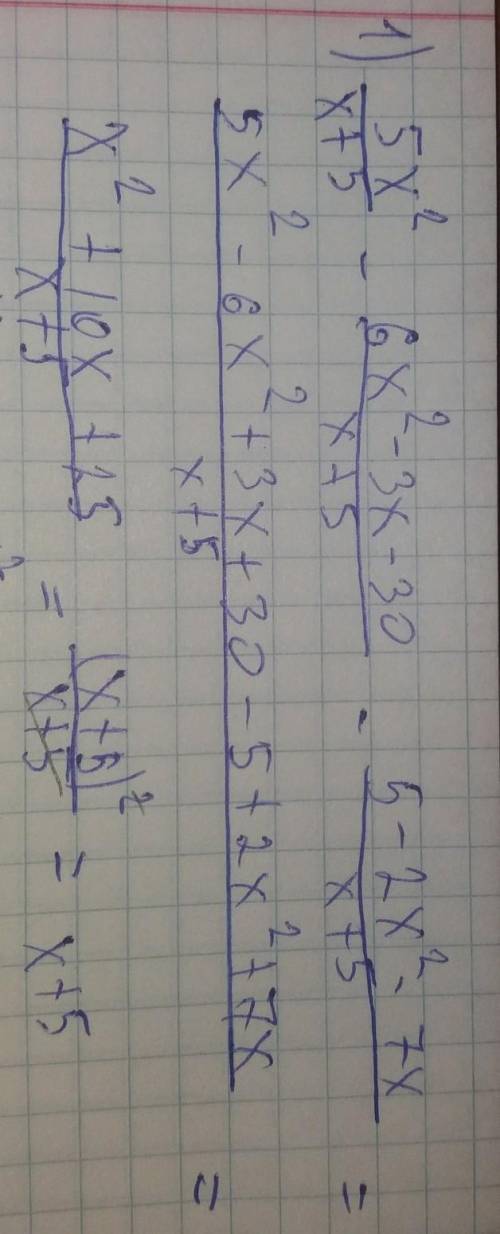 1) 5x²/x+5 - 6x²-3x-30/x+5 - 5-2x²-7x/x+5 =
5x²-6x²+3x+30-5+2x²+7x/x+5 =
x²+10x+25/x+5 = (x+5)²/x+5 = x+5